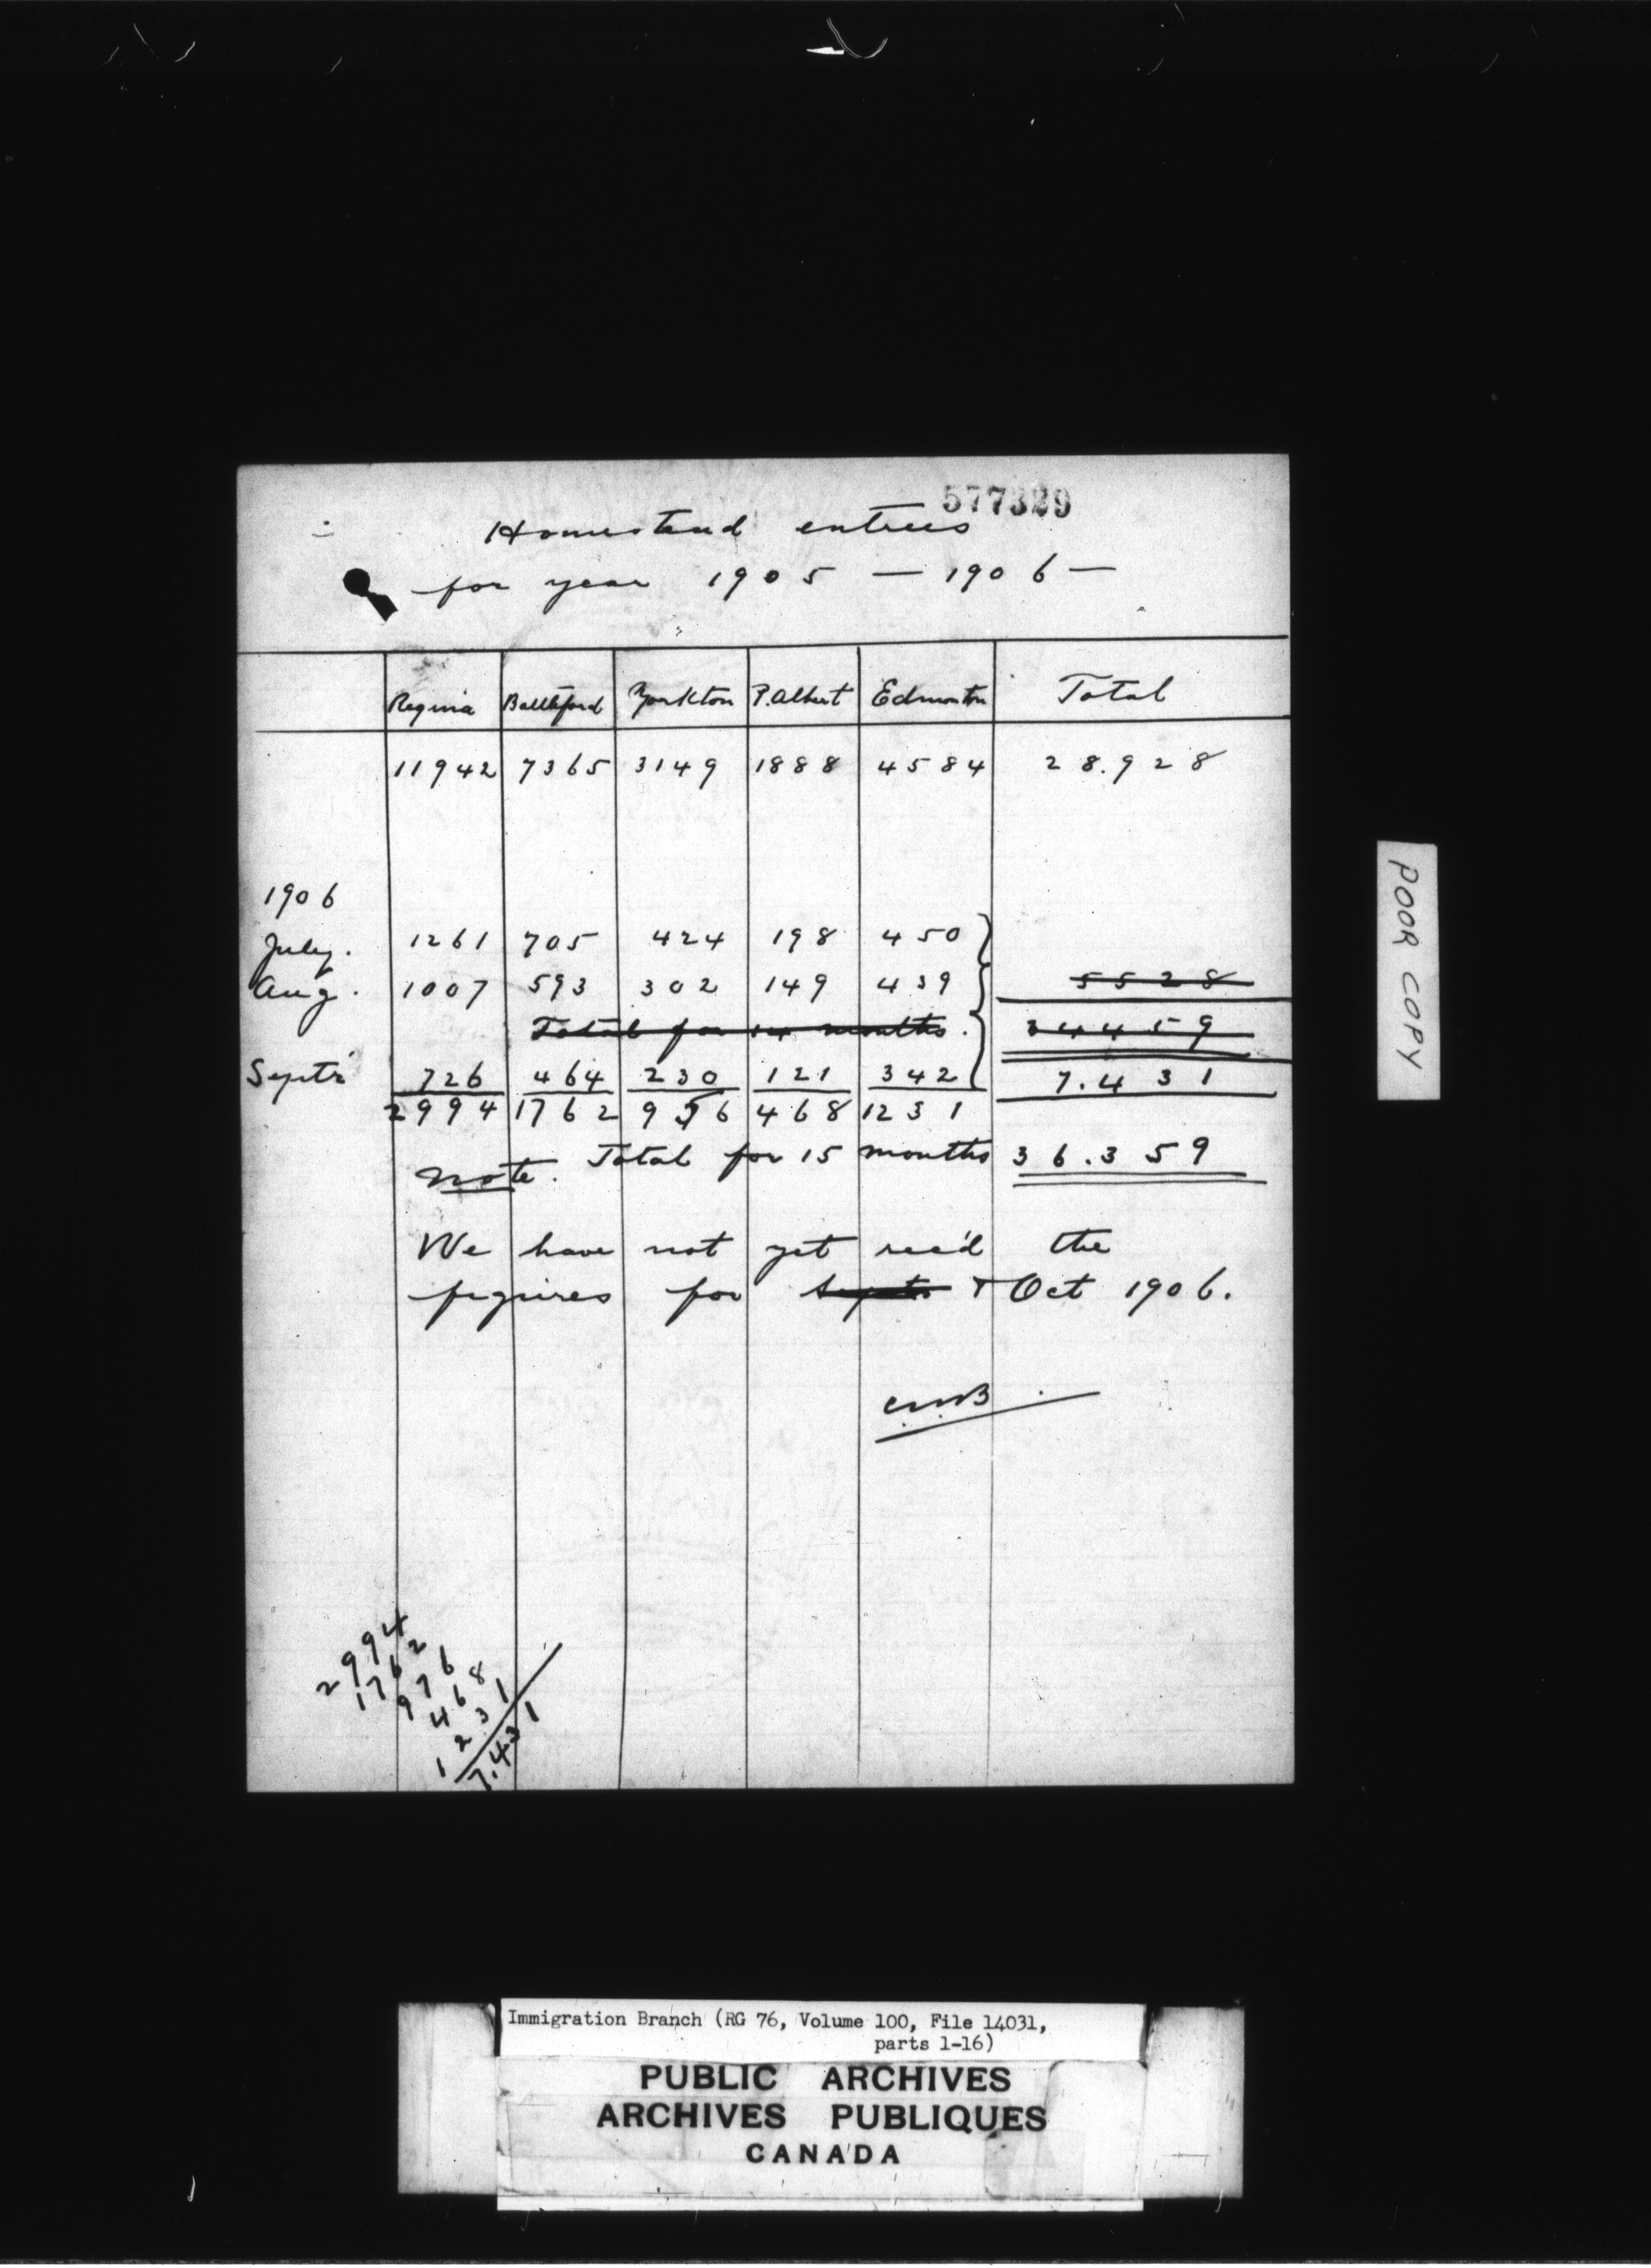 577329
Homestead entries
for year 1905 — 1906 —
Regina Battleford Yorkton P. Albert Edmonton Total
11942 7365 3149 1888 4584 28.928
1906
July. 1261 705 424 198 450
Aug. 1007 593 302 149 439 5528
Total for 14 months. 34459
Septr 726 464 230 121 342 7.431
2994 1762 956 468 1231
Note. Total for 15 months 36.359
We have not yet rec'd the
figures for Septr & Oct 1906.
2994
1762
976
468
1231
7.431
POOR COPY
Immigration Branch (RG 76, Volume 100, File 14031,
parts 1-16)
PUBLIC ARCHIVES
ARCHIVES PUBLIQUES
CANADA